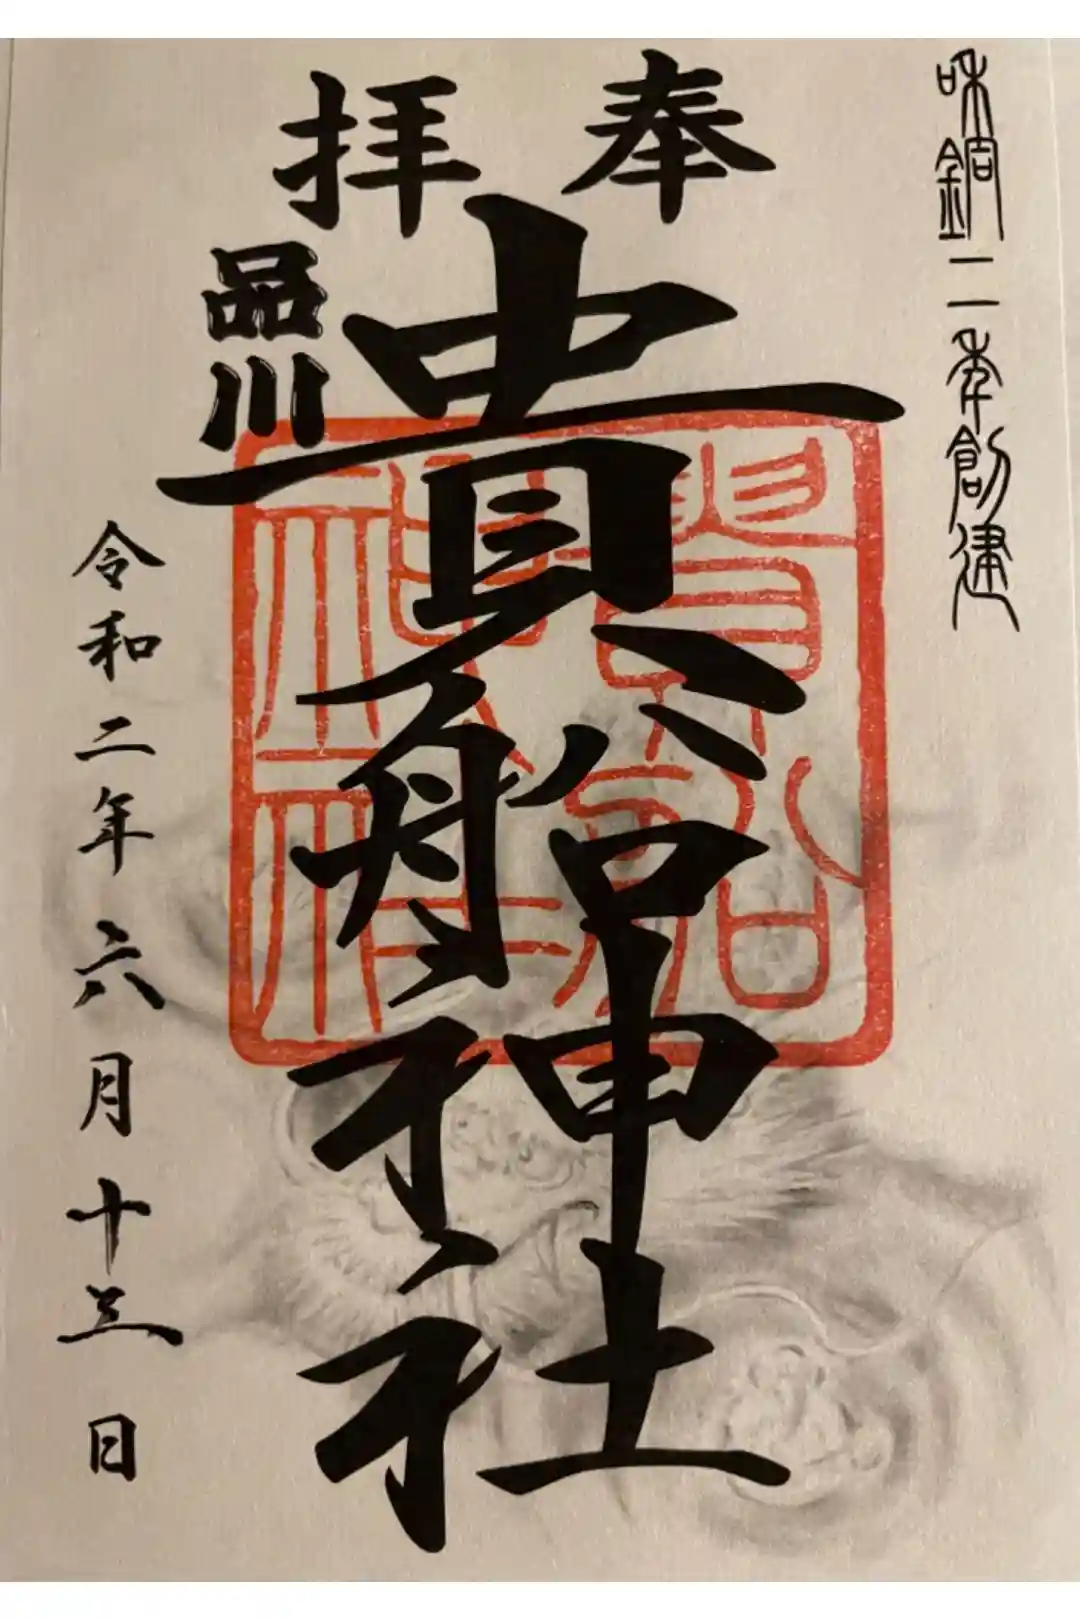 和銅二年創建
奉拝
品川
貴船神社
令和二年六月十三日